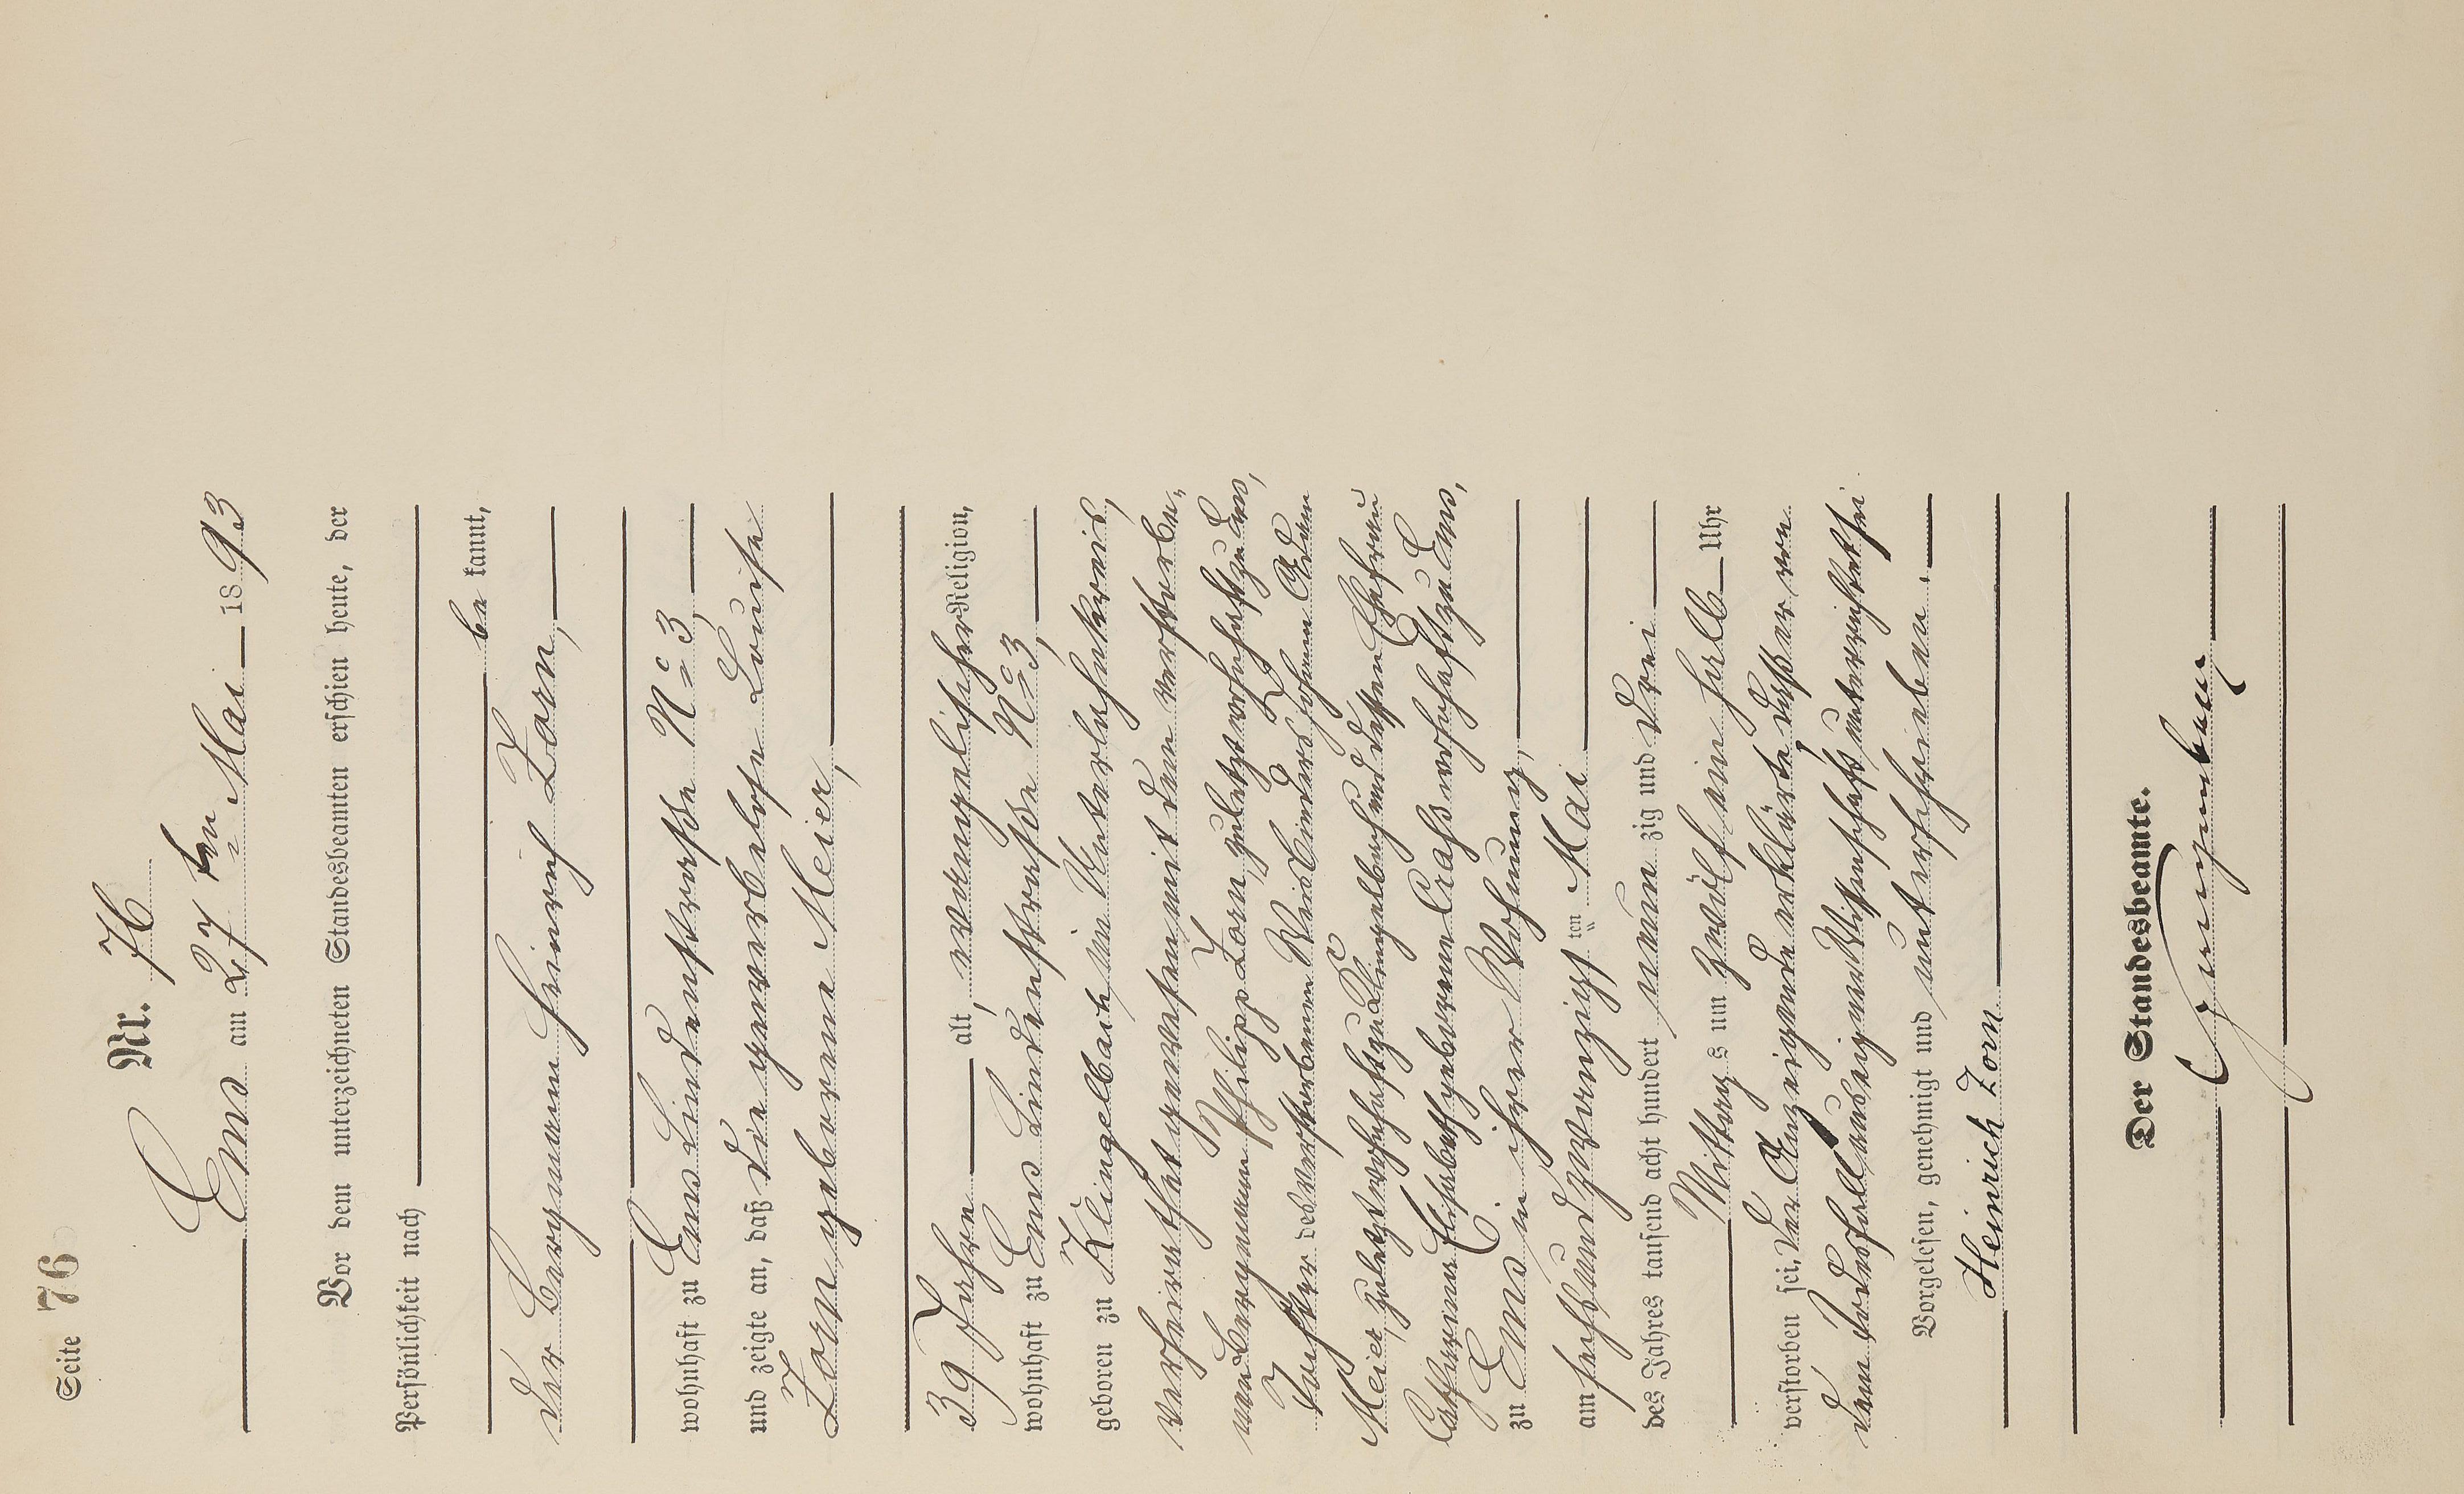 Seite 76
Nr. 76
Ems am 27ten Mai 1893
Vor dem unterzeichneten Standesbeamten erschien heute, der
Persönlichkeit nach
be kannt,
der Bergmann Heinrich Zorn,
wohnhaft zu Ems Lindenstraße No 3,
und zeigte an, daß die gewerbelose Louise
Zorn geborene Meier,
39 Jahre alt, evangelischer Religion,
wohnhaft zu Ems Lindenstraße No 3,
geboren zu Klingelbach im Unterlahnkreis,
verheirathet gewesen mit dem verstorbe-
nen Bergmann Philipp Zorn, zuletzt wohnhaft zu Ems,
Tochter des verstorbenen Johann Adam
Meier, zuletzt wohnhaft zu Klingelbach und dessen Ehefrau
Catharina Elisabeth geborene wohnhaft zu Ems,
zu Ems in ihrer Wohnung,
am sechsundzwanzigsten Mai
des Jahres tausend acht hundert neun zig und drei
Mittags um zwölf ein halb Uhr
verstorben sei, der Anzeigende erklärte, daß er von
dem Todesfall aus eigener Wissenschaft unterrichtet sei
Vorgelesen, genehmigt und unterschrieben.
Heinrich Zorn
Der Standesbeamte.